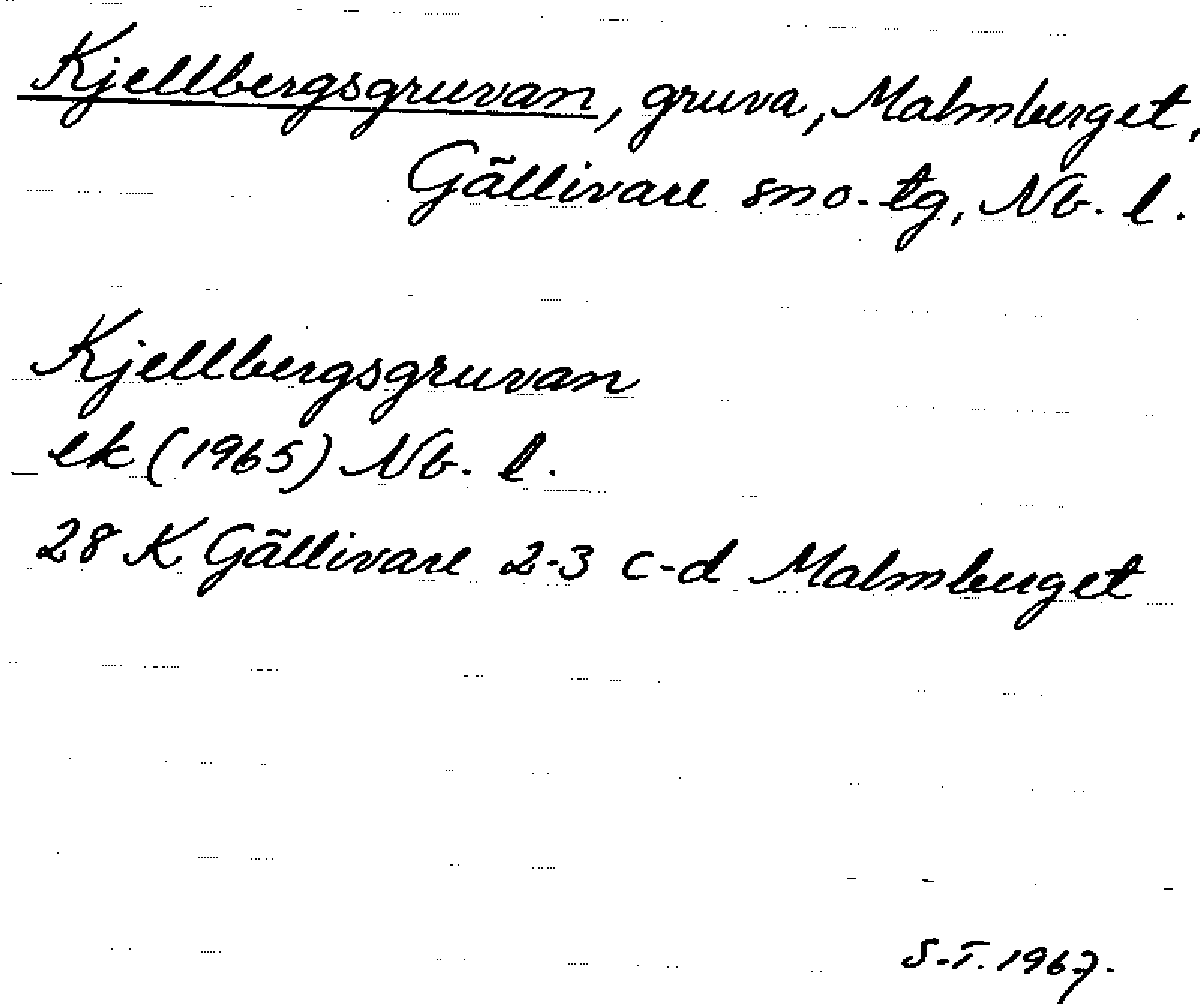 Kjellbergsgruvan, gruva, Malmberget,
Gällivare smo-tg, Nb. l.
Kjellbergsgruvan
ek (1965) Nb. l.
28 K Gällivare 2-3 c-d Malmberget
S.T. 1967.